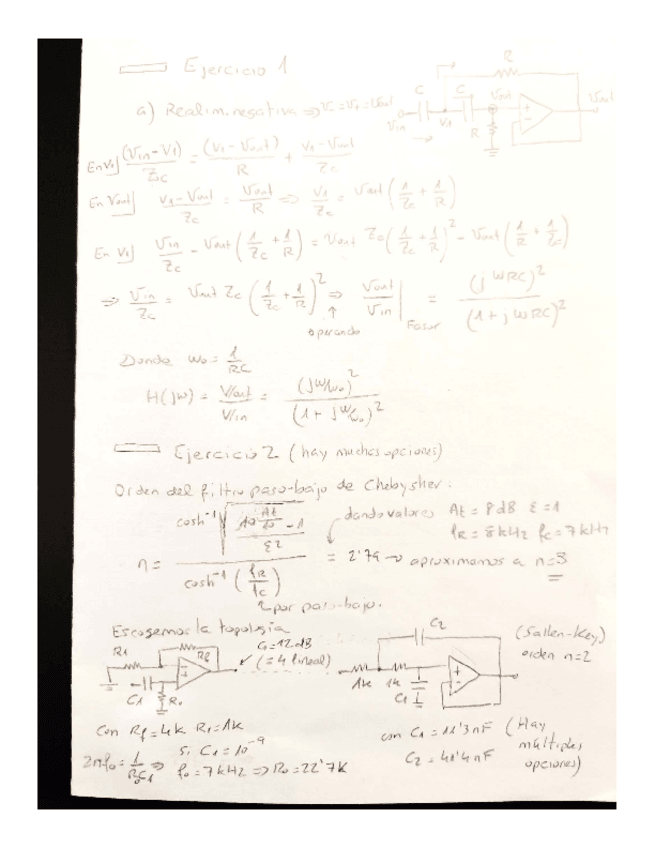 Ejercicio 1
a) Realim. negativa ⇒ V- = V+ = Vout
C C R Vin V1 Vout R Vout
En V1] (Vin-V1)/Zc = (V1-Vout)/R + (V1-Vout)/Zc
En Vout] (V1-Vout)/Zc = Vout/R ⇒ V1/Zc = Vout (1/Zc + 1/R)
En V1] Vin/Zc - Vout (1/Zc + 1/R) = Vout Zc (1/Zc + 1/R)^2 - Vout (1/R + 1/Zc)
⇒ Vin/Zc = Vout Zc (1/Zc + 1/R)^2 ⇒ Vout/Vin | Fasor = (jωRC)^2/(1+jωRC)^2
↑
operando
Donde ω0 = 1/RC
H(jω) = Vout/Vin = (jω/ω0)^2/(1+jω/ω0)^2
Ejercicio 2 (hay muchas opciones)
Orden del filtro paso-bajo de Chebyshev:
n = cosh^-1 √((10^(At/10) -1)/ε2) / cosh^-1 (fR/fc) = 2'79 → aproximamos a n=3
dando valores At = 8dB ε=1
fR = 8kHz fc = 7kHz
por paso-bajo.
Escogemos la topología
G=12dB
(=4 lineal)
R1 Rf C1 R0
C2 1k 1k C1
(Sallen-Key)
orden n=2
con Rf=4k R1=1k
Si C1 = 10^-9
2πf0 = 1/R0C1 ⇒ f0 = 7kHz ⇒ R0 = 22'7K
con C1 = 11'3nF (Hay
C2 = 41'4nF múltiples
opciones)